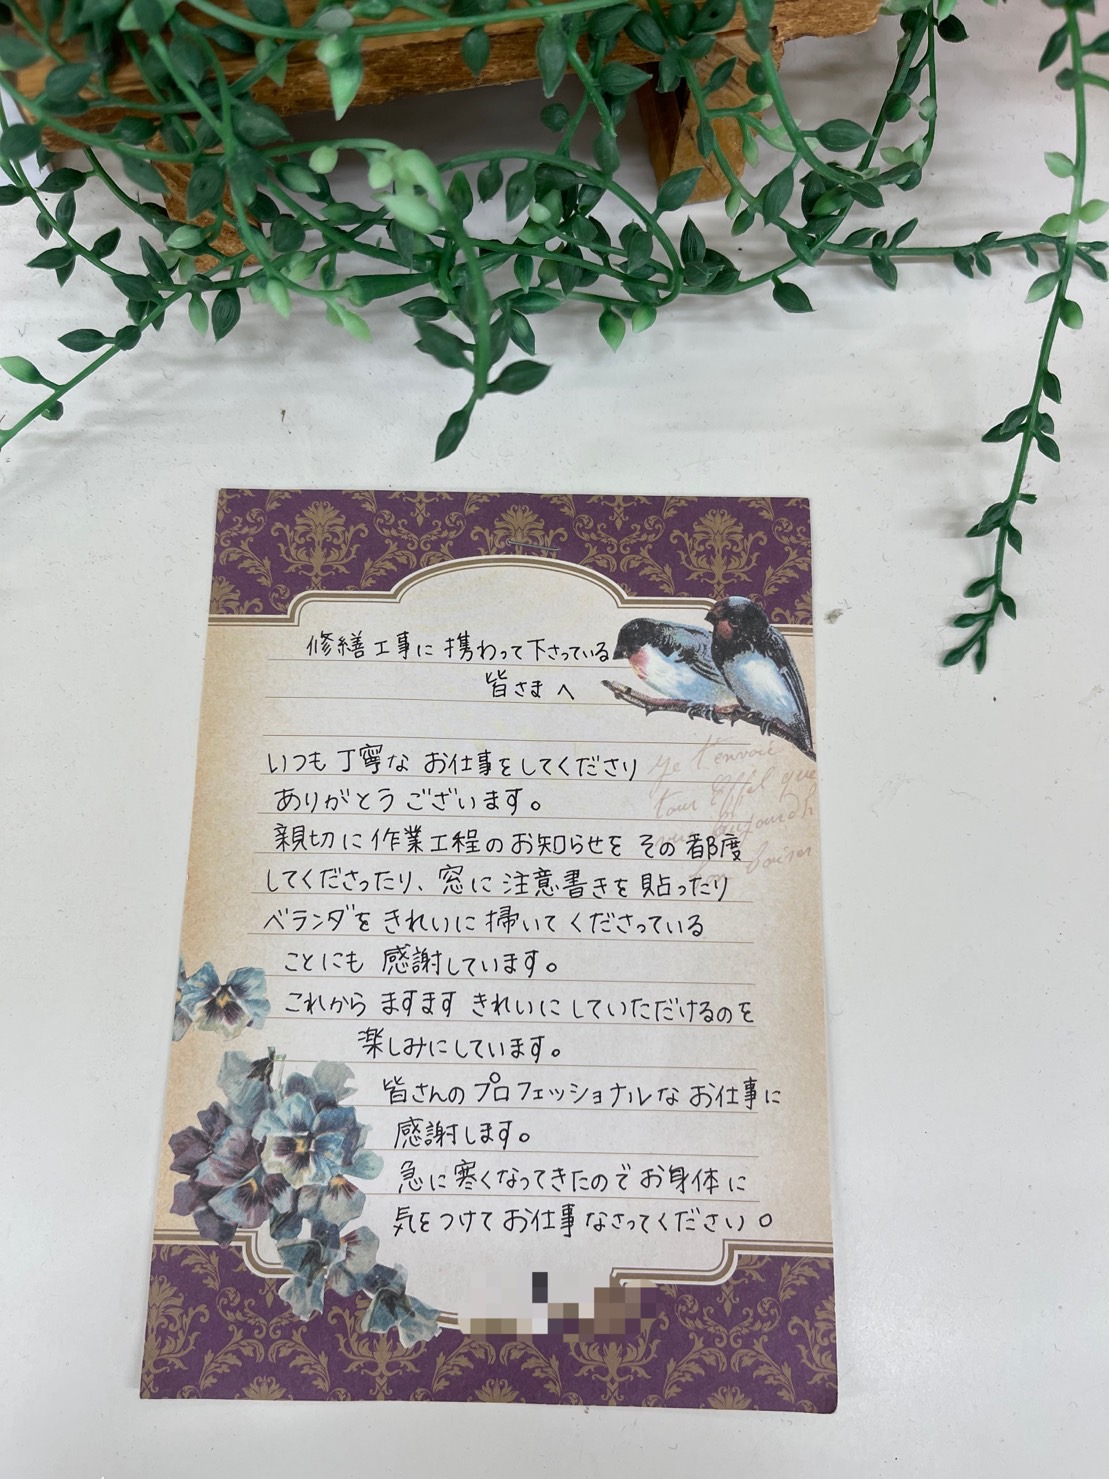 修繕工事に携わって下さっている
皆さまへ
いつも丁寧なお仕事をしてくださり
ありがとうございます。
親切に作業工程のお知らせをその都度
してくださったり、窓に注意書きを貼ったり
ベランダをきれいに掃いてくださっている
ことにも感謝しています。
これからますますきれいにしていただけるのを
楽しみにしています。
皆さんのプロフェッショナルなお仕事に
感謝します。
急に寒くなってきたのでお身体に
気をつけてお仕事なさってください。
Je t'envoie
tour Eiffel que